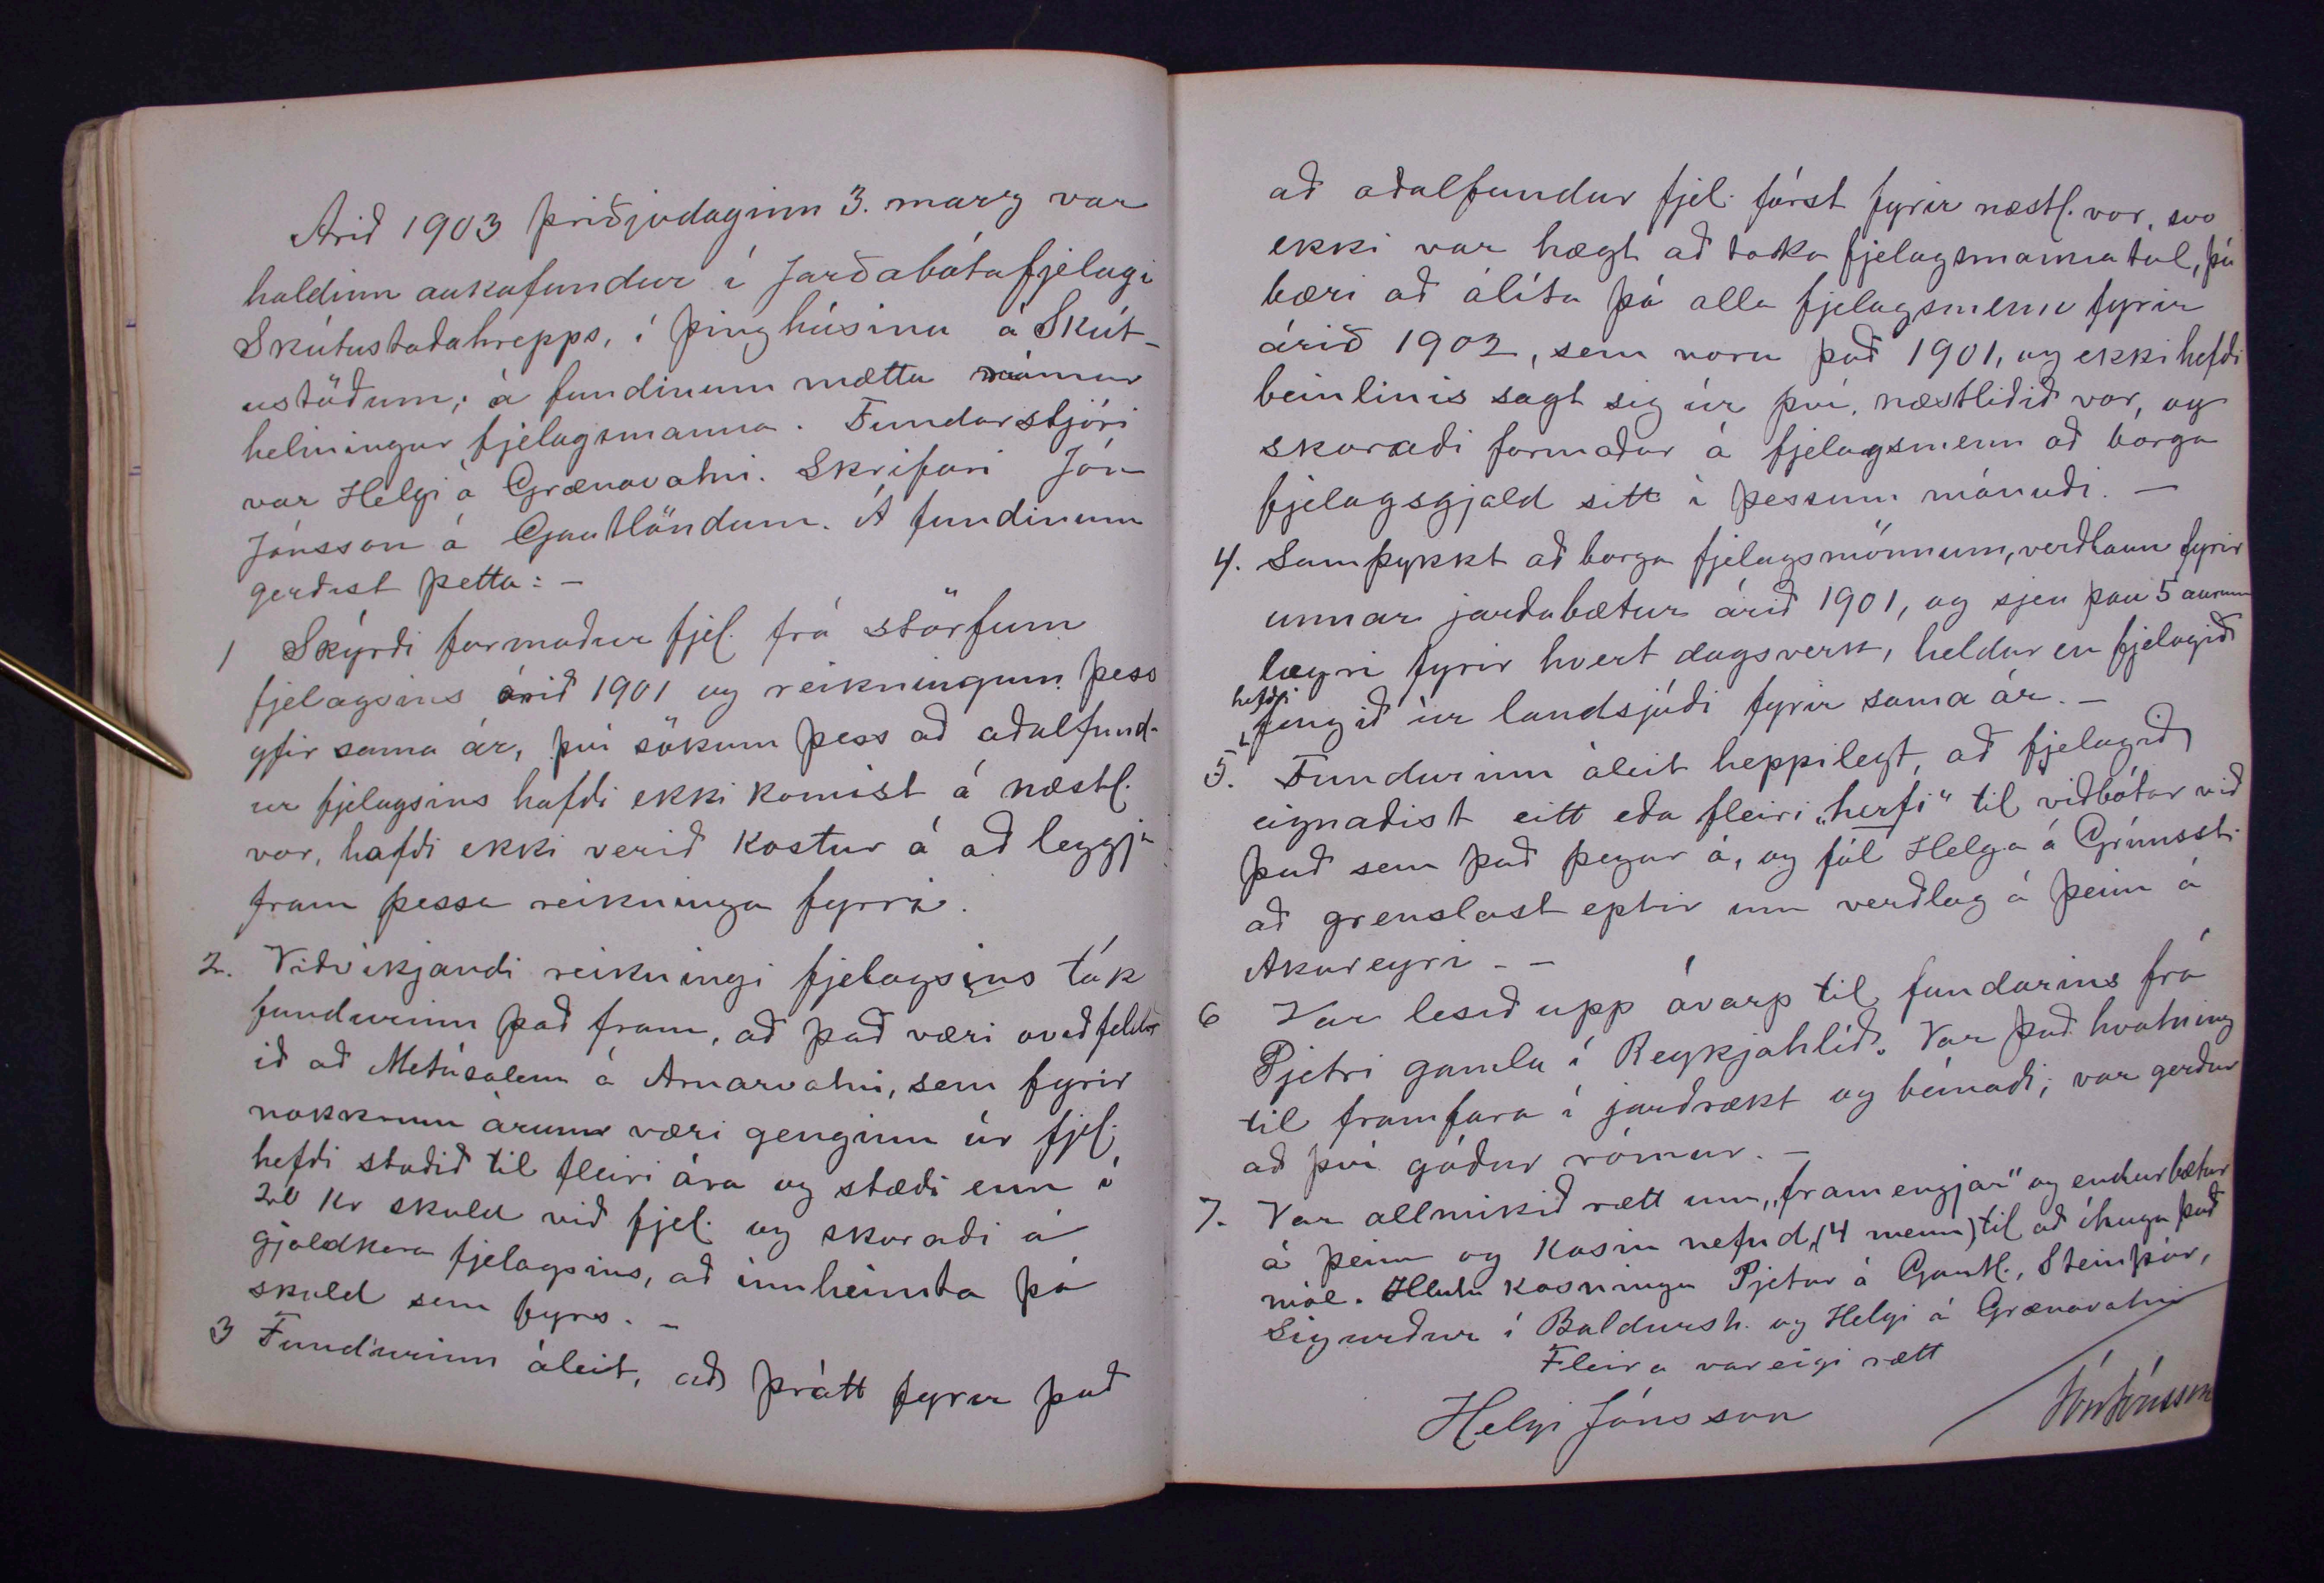 Árið 1903 þriðjudaginn 3. marz var
haldinn aukafundur í Jarðabótafjelagi
Skútustaðahrepps, í þinghúsinu á Skút-
ustöðum; á fundinum mættu rúmur
helmingur fjelagsmanna. Fundarstjóri
var Helgi á Grænavatni. Skrifari Jón
Jónsson á Gautlöndum. Á fundinum
gerðist þetta: -
1 Skýrði formaður fjel. frá störfum
fjelagsins árið 1901 og reikningum þess
yfir sama ár, því sökum þess að aðalfund-
ur fjelagsins hafði ekki komist á næstl.
vor, hafði ekki verið kostur á að leggja
fram þessa reikninga fyrri.
2. Viðvikjandi reikningi fjelagsins tók
fundurinn það fram, að það væri
ið að Metúsalem á Arnarvatni, sem fyrir
nokkrum árum væri genginn úr fjel.
hefði staðið til fleiri ára og stæði enn í
kr skuld við fjel. og skoraði á
gjaldkera fjelagsins, að innheimta þá
skuld sem fyrs. -
3 Fundurinn áleit, að þrátt fyrir það
að aðalfundur fjel. fórst fyrir næstl. vor, svo
ekki var hægt að taka fjelagsmannatal, þá
bæri að álíta þá alla fjelagsmenn fyrir
árið 1902, sem voru það 1901, og ekki hefði
beinlinis sagt sig úr því, næstliðið vor, og
skoraði formaður á fjelagsmenn að borga
fjelagsgjald sitt í þessum mánuði. -
4. Samþykkt að borga fjelagsmönnum, verðlaun fyrir
unnar jarðabætur árið 1901, og sjeu þau 5 aurum
lægri fyrir hvert dagsverk, heldur en fjelagið
hefði
fengið úr landsjóði fyrir sama ár. -
5. Fundurinn áleit heppilegt, að fjelagið
eignaðist eitt eða fleiri „herfi" til viðbótar við
það sem það þegar á, og fól Helga á Grímsst.
að grenslast eptir um verðlag á þeim á
Akureyri - -
6 Var lesið upp ávarp til fundarins frá
Pjetri gamla í Reykjahlíð. Var það hvatning
til framfara í jarðrækt og búnaði; var gerður
að því góður rómur. -
7. Var allmikið rætt um „framengjar" og endurbætur
á þeim og kosin nefnd, (4 menn) til að íhuga það
mál. Hlutu kosningu Pjetur á Gautl., Steinþór,
Sigurður í Baldursh. og Helgi á Grænavatni
Fleira var eigi rætt
Helgi Jónsson
Jón Jónsson